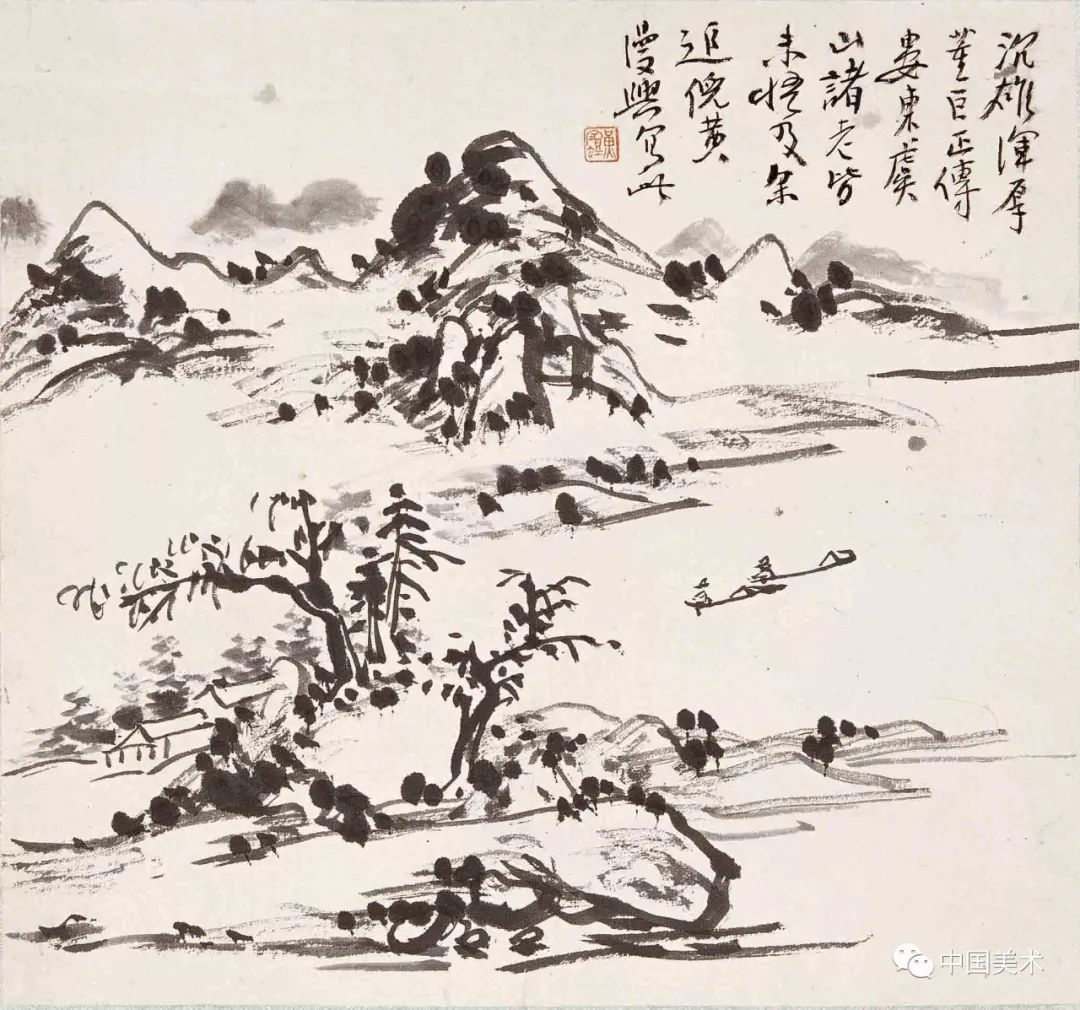 沉雄浑厚
董巨正傳
婁東虞
山諸老皆
未悟及余
追倪黄
漫興寫此
中国美术